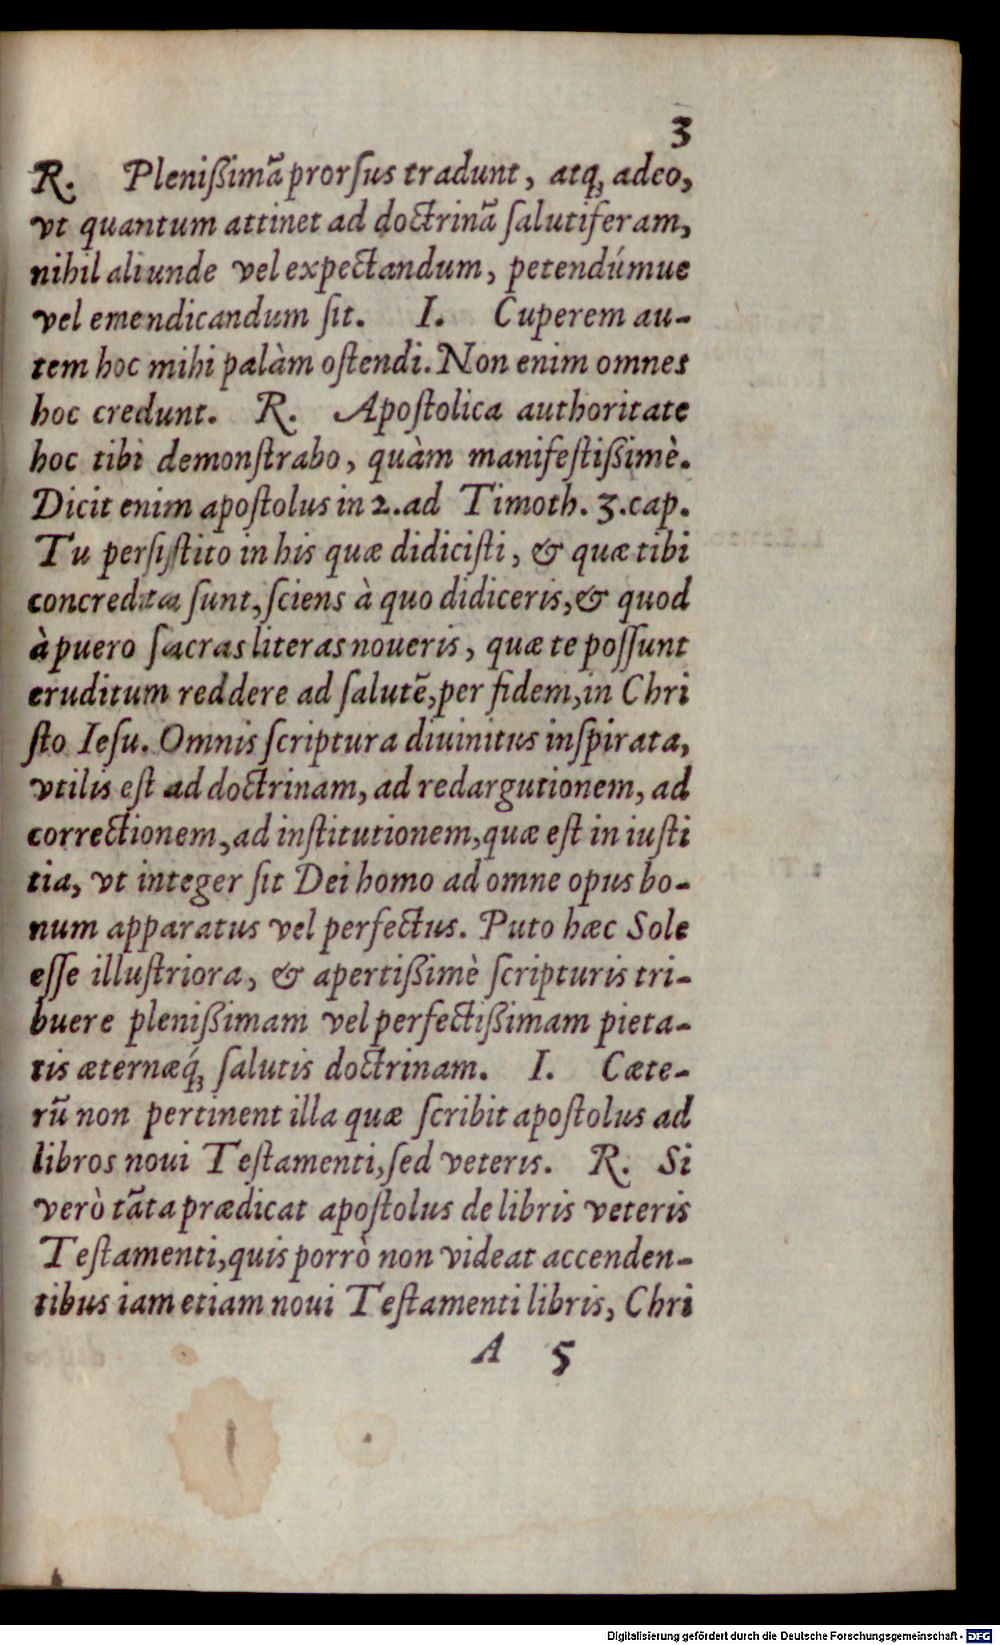 3
R. Plenißimã prorſus tradunt, atq; adeo,
vt quantum attinet ad doctrinã ſalutiferam,
nihil aliunde vel expectandum, petendúmue
vel emendicandum ſit. I. Cuperem au-
tem hoc mihi palàm oſtendi. Non enim omnes
hoc credunt. R. Apoſtolica authoritate
hoc tibi demonſtrabo, quàm manifeſtißimè.
Dicit enim apoſtolus in 2. ad Timoth. 3. cap.
Tu perſiſtito in his quæ didiciſti, & quæ tibi
concredita ſunt, ſciens à quo didiceris, & quod
à puero ſacras literas noueris, quæ te poſſunt
eruditum reddere ad ſalutē, per fidem, in Chri
ſto Ieſu. Omnis ſcriptura diuinitus inſpirata,
vtilis eſt ad doctrinam, ad redargutionem, ad
correctionem, ad inſtitutionem, quæ eſt in iuſti
tia, vt integer ſit Dei homo ad omne opus bo-
num apparatus vel perfectus. Puto hæc Sole
eſſe illuſtriora, & apertißimè ſcripturis tri-
buere plenißimam vel perfectißimam pieta-
tis æternæq́; ſalutis doctrinam. I. Cæte-
rũ non pertinent illa quæ ſcribit apoſtolus ad
libros noui Teſtamenti, ſed veteris. R. Si
verò tãta prædicat apoſtolus de libris veteris
Teſtamenti, quis porrò non videat accenden-
tibus iam etiam noui Teſtamenti libris, Chri
A 5
Digitalisierung gefördert durch die Deutsche Forschungsgemeinschaft - DFG